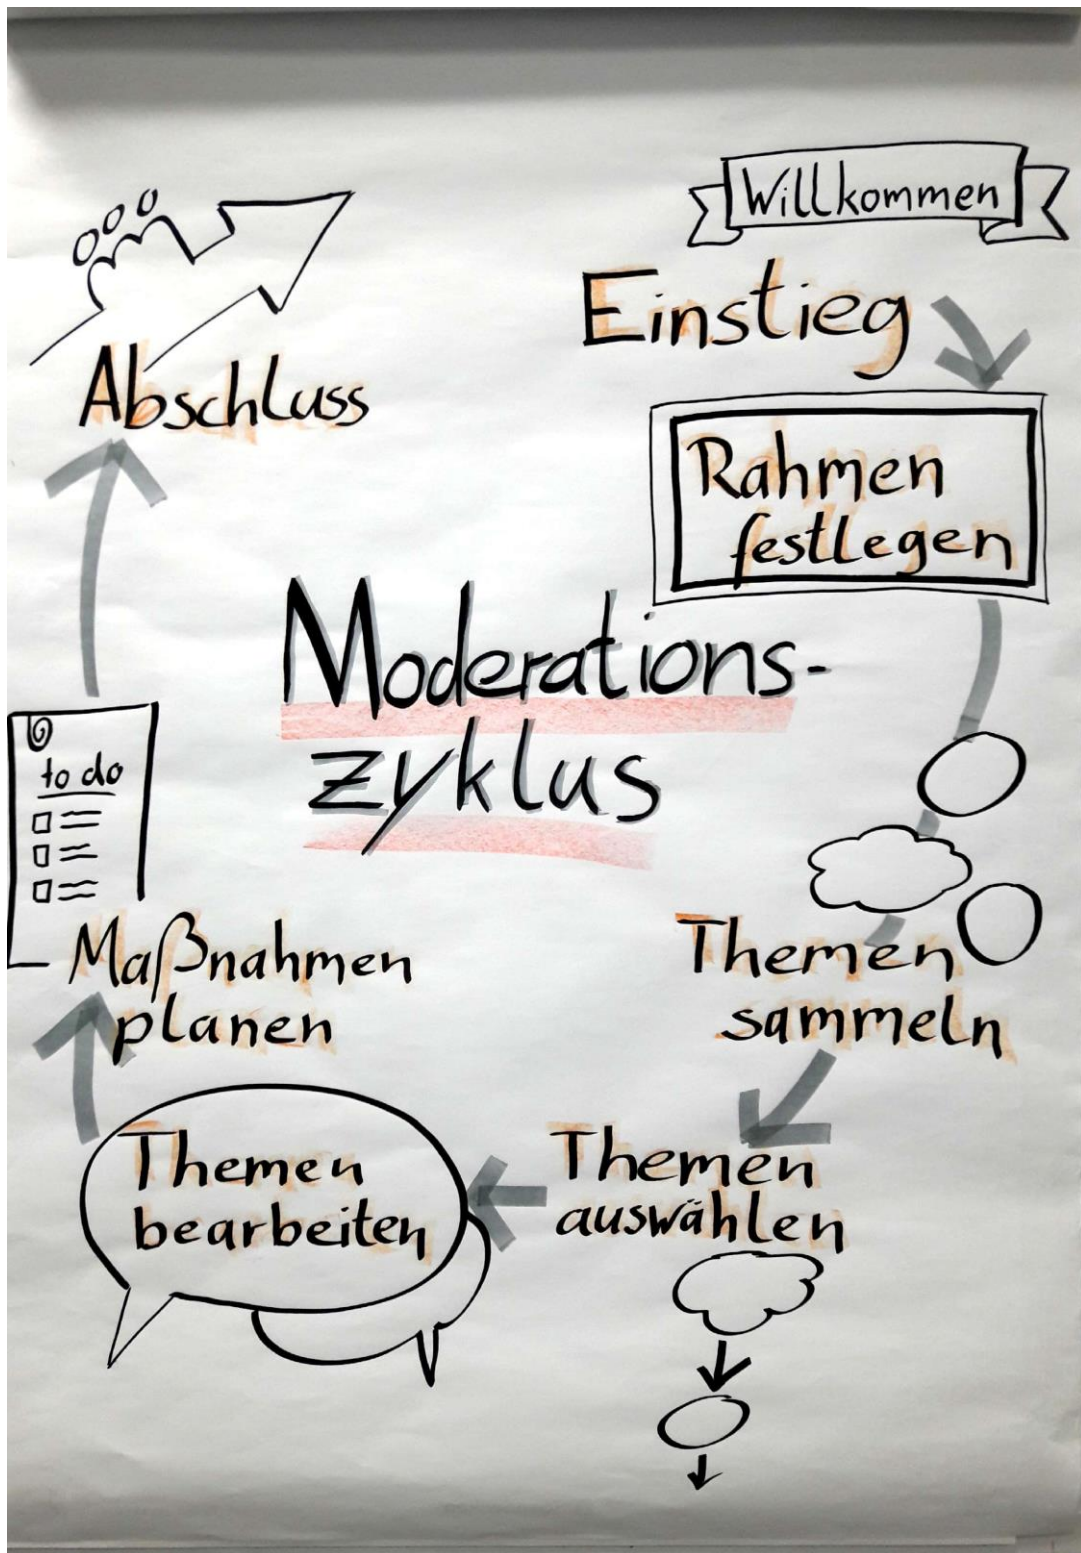 Willkommen
Einstieg
Rahmen
festlegen
Moderations-
zyklus
Themen
sammeln
Themen
auswählen
Themen
bearbeiten
Maßnahmen
planen
to do
Abschluss